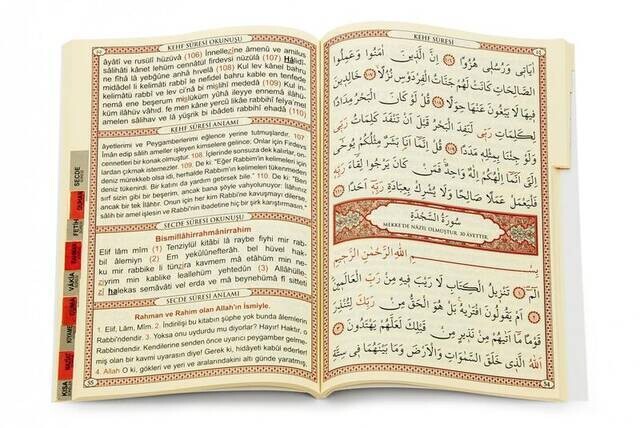 KEHF SÛRESİ
اٰيَات۪ي وَرُسُل۪ي هُزُوًا ﴿١٠٦﴾ اِنَّ الَّذ۪ينَ اٰمَنُوا وَعَمِلُوا
الصَّالِحَاتِ كَانَتْ لَهُمْ جَنَّاتُ الْفِرْدَوْسِ نُزُلًا ﴿١٠٧﴾ خَالِد۪ينَ
ف۪يهَا لَا يَبْغُونَ عَنْهَا حِوَلًا ﴿١٠٨﴾ قُلْ لَوْ كَانَ الْبَحْرُ مِدَادًا
لِكَلِمَاتِ رَبّ۪ي لَنَفِدَ الْبَحْرُ قَبْلَ اَنْ تَنْفَدَ كَلِمَاتُ رَبّ۪ي
وَلَوْ جِئْنَا بِمِثْلِه۪ مَدَدًا ﴿١٠٩﴾ قُلْ اِنَّمَٓا اَنَا۬ بَشَرٌ مِثْلُكُمْ يُوحٰٓى
اِلَيَّ اَنَّمَٓا اِلٰهُكُمْ اِلٰهٌ وَاحِدٌ فَمَنْ كَانَ يَرْجُوا لِقَٓاءَ رَبِّه۪
فَلْيَعْمَلْ عَمَلًا صَالِحًا وَلَا يُشْرِكْ بِعِبَادَةِ رَبِّه۪ٓ اَحَدًا ﴿١١٠﴾
سُورَةُ السَّجْدَةِ
MEKKE'DE NÂZİL OLMUŞTUR. 30 ÂYETTİR.
بِسْمِ اللّٰهِ الرَّحْمٰنِ الرَّح۪يمِ
الٓمٓ ﴿١﴾ تَنْز۪يلُ الْكِتَابِ لَا رَيْبَ ف۪يهِ مِنْ رَبِّ الْعَالَم۪ينَ ﴿٢﴾
اَمْ يَقُولُونَ افْتَرٰيهُ بَلْ هُوَ الْحَقُّ مِنْ رَبِّكَ لِتُنْذِرَ
قَوْمًا مَٓا اَتٰيهُمْ مِنْ نَذ۪يرٍ مِنْ قَبْلِكَ لَعَلَّهُمْ يَهْتَدُونَ ﴿٣﴾
اَللّٰهُ الَّذ۪ي خَلَقَ السَّمٰوَاتِ وَالْاَرْضَ وَمَا بَيْنَهُمَا ف۪ي سِتَّةِ
54
KEHF SÛRESİ OKUNUŞU
âyâtî ve rusulî hüzüvâ (106) İnnellezîne âmenû ve amilus
sâlihâti kânet lehüm cennâtül firdevsi nüzülâ (107) Hâlidî-
ne fîhâ lâ yebğûne anhâ hıvelâ (108) Kul lev kânel bahru
midâdel li kelimâti rabbî le nefidel bahru kable en tenfede
kelimâtü rabbî ve lev ci'nâ bi mislihî mededâ (109) Kul in-
nemâ ene beşerum mislüküm yûhâ ileyye ennemâ ilâhü-
küm ilâhüv vâhıd. fe men kâne yercû likâe rabbihî felya'mel
amelen sâlihav ve lâ yüşrik bi ibâdeti rabbihî ehadâ (110)
KEHF SÛRESİ ANLAMI
âyetlerimi ve Peygamberlerimi eğlence yerine tutmuşlardır. 107.
İman edip salih ameller işleyen kimselere gelince; Onlar için Firdevs
cennetleri bir konak olmuştur. 108. İçlerinde sonsuza dek kalırlar, on-
lardan çıkmak istemezler. 109. De ki: "Eğer Rabbim'in kelimeleri için
deniz mürekkeb olsa idi, herhalde Rabbim'in kelimeleri tükenmeden
deniz tükenirdi. Bir katını da yardım getirsek bile." 110. De ki: "Ben
sırf sizin gibi bir beşerim, ancak bana şöyle vahyolunuyor: İlâhınız
ancak bir tek İlâhtır. Onun için her kim Rabbi'ne kavuşmayı dilerse,
sâlih bir amel işlesin ve Rabbi'nin ibadetine hiç bir şirk karıştırmasın."
SECDE SÛRESİ OKUNUŞU
Bismillâhirrahmânirrahîm
Elif lâm mîm (1) Tenzîylül kitâbi lâ raybe fîhi mir rab-
bil âlemîyn (2) Em yekûlûnefterâh. bel hüvel hak-
ku mir rabbike li tünzira kavmem mâ etâhüm min ne-
zîyrim min kablike leallehüm yehtedûn (3) Allâhülle-
zî halekas semâvâti vel erda ve mâ beynehümâ fî sitteti
SECDE SÛRESİ ANLAMI
Rahman ve Rahim olan Allah'ın İsmiyle.
1. Elif, Lâm, Mîm. 2. İndirilişi bu kitabın şüphe yok bunda âlemlerin
Rabbi'ndendir. 3. Yoksa onu uydurdu mu diyorlar? Hayır! Haktır, o
Rabbindendir. Kendilerine senden önce uyarıcı peygamber gelme-
miş olan bir kavmi uyarasın diye! Gerek ki, hidâyeti kabûl ederler!
4. Allah O ki, gökleri ve yeri ve aralarındakini altı günde yaratmış,
55
SECDE
DUHAN
FETİH
RAHMAN
VÂKIA
CUMA
KIYAMET
KISA